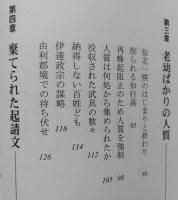 第三章　老幼ばかりの人質
仙北一揆のはじまりと終わり　89
削られる知行高　95
再蜂起阻止のため人質を強制　98
人質は何処から集められたか　105
没収された武具の数々　112
納得しない百姓ども　114
伊達政宗の謀略　116
由利郡境での待ち伏せ　126
第四章　棄てられた起請文